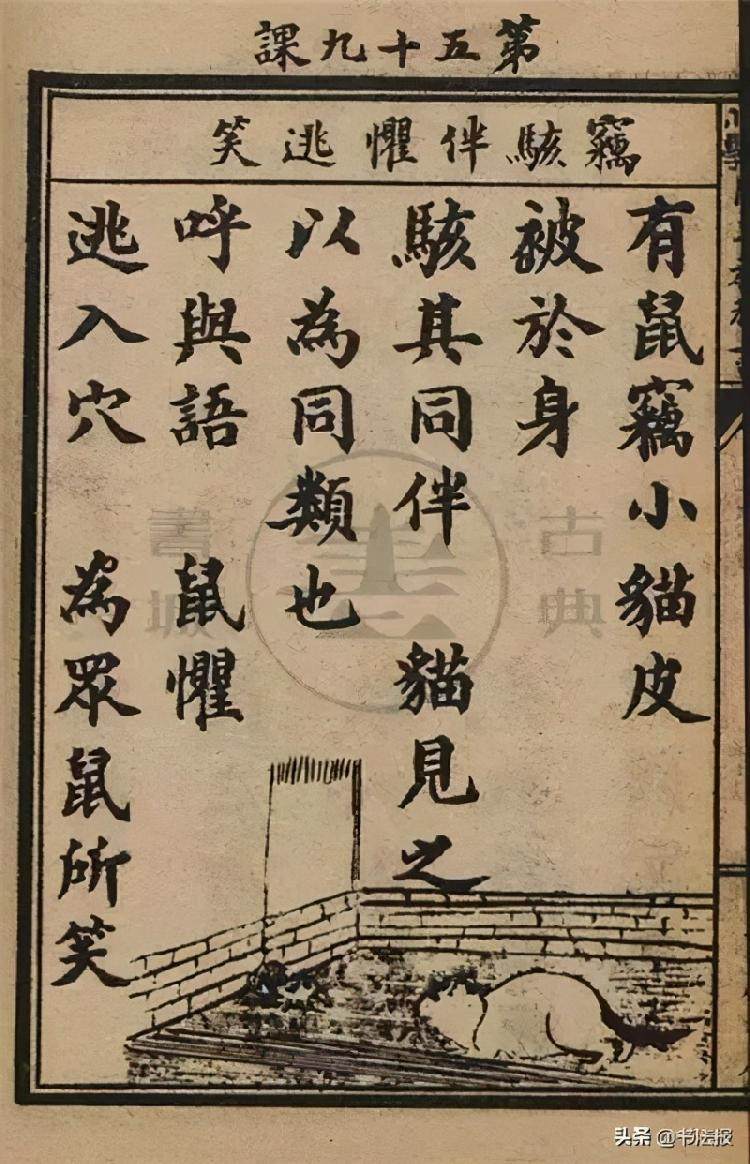 第五十九課
竊駭伴懼逃笑
有鼠竊小貓皮
被於身
駭其同伴 貓見之
以為同類也
呼與語 鼠懼
逃入穴 為眾鼠所笑
古典
書城
头条 @书法报